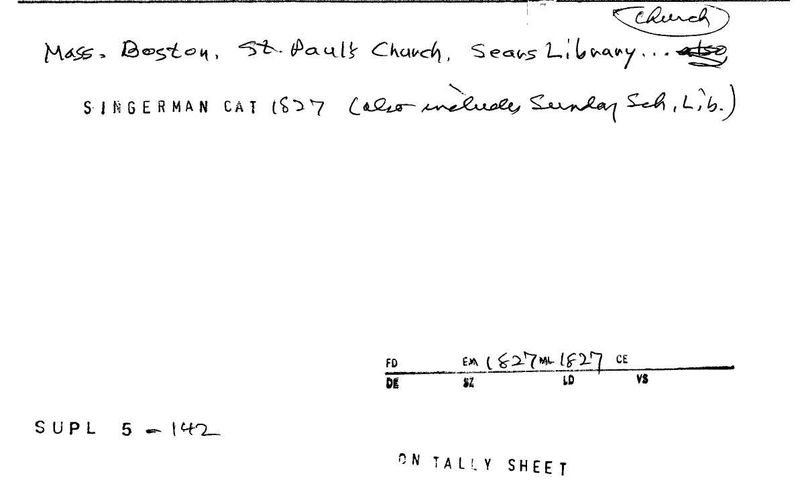 Church
Mass. Boston. St. Paul's Church, Sears Library... also
SINGERMAN CAT 1827 (also includes Sunday Sch. Lib.)
FD EM 1827 ML 1827 CE
DE SZ LD VS
SUPL 5 - 142
ON TALLY SHEET